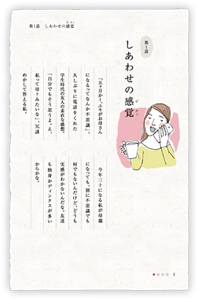 第1話 しあわせの感覚
第1話
しあわせの感覚
「五ヶ月かー。ユキがお母さん
になるってなんか不思議」。
久しぶりに電話をくれた
学生時代の友人の素直な感想。
「自分でもそう思うよ。え、
私って母？みたいな」。冗談
めかして答える私。
今年三十になる私が母親
になっても、別に不思議でも
何でもないんだけど、どうも
実感がわかないんだな。友達
も独身かディンクスが多い
からかな。
1